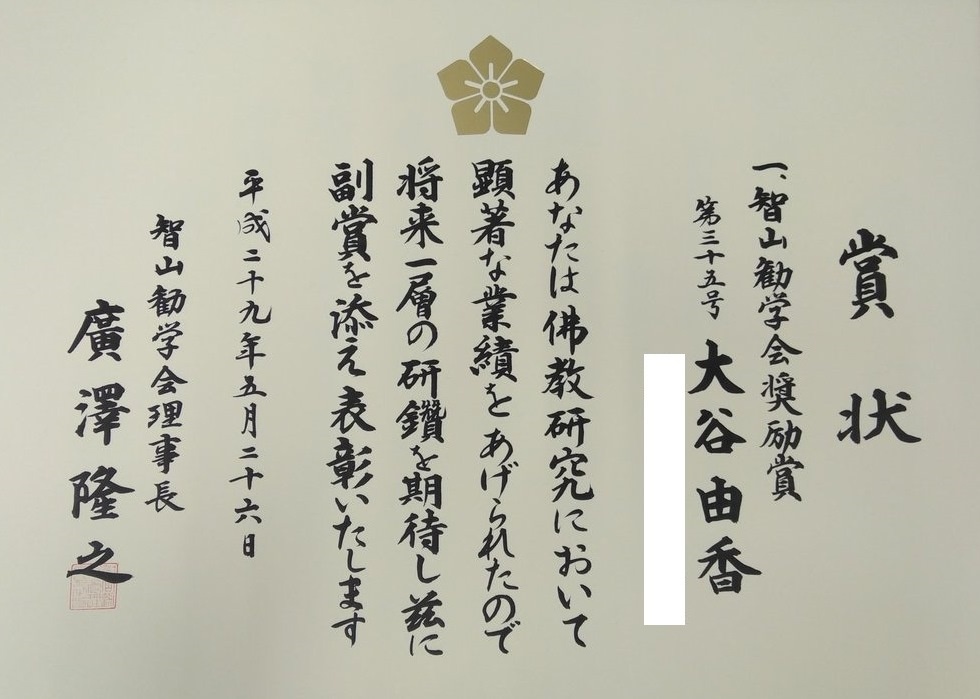 賞状
一、智山勧学会奨励賞
第三十五号 大谷由香
あなたは佛教研究において
顕著な業績をあげられたので
将来一層の研鑽を期待し茲に
副賞を添え表彰いたします
平成二十九年五月二十六日
智山勧学会理事長
廣澤隆之